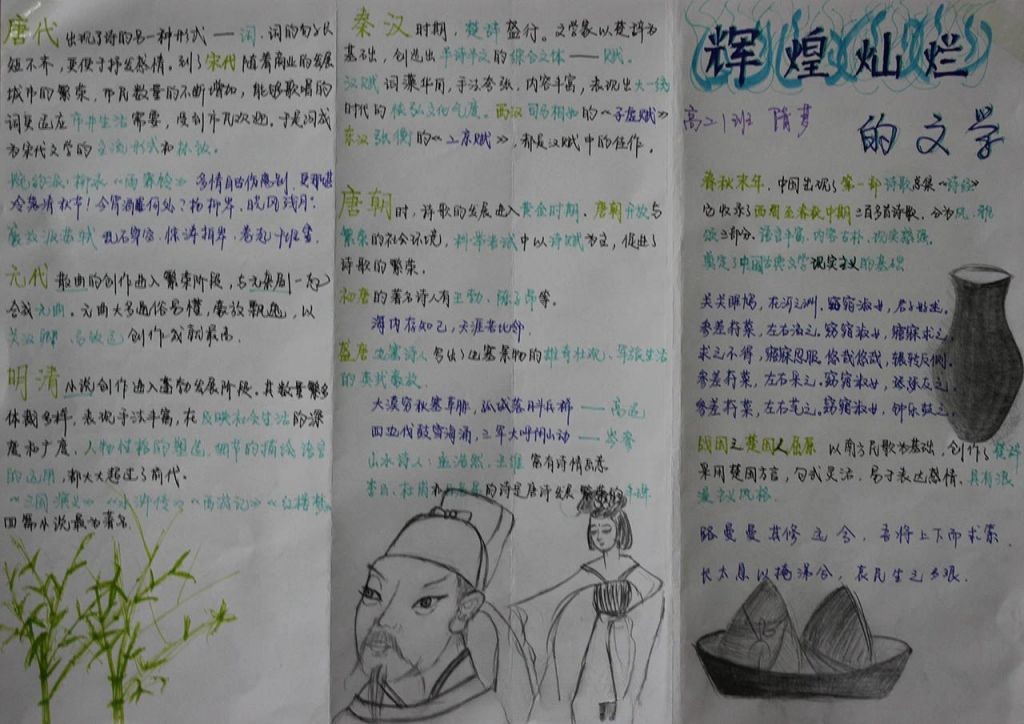 辉煌灿烂
的文学
高二1班 隋梦
春秋末年，中国出现了第一部诗歌总集《诗经》
它收录了西周至春秋中期三百多首诗歌，分为风、雅
颂三部分，语言丰富，内容古朴，现实感强，
奠定了中国古典文学现实主义的基础
关关雎鸠，在河之洲，窈窕淑女，君子好逑。
参差荇菜，左右流之，窈窕淑女，寤寐求之，
求之不得，寤寐思服，悠哉悠哉，辗转反侧。
参差荇菜，左右采之，窈窕淑女，琴瑟友之，
参差荇菜，左右芼之，窈窕淑女，钟乐鼓之，
战国之楚国人屈原 以南方民歌为基础，创作了楚辞
采用楚国方言，句式灵活，易于表达感情，具有浪
漫主义风格
路曼曼其修远兮，吾将上下而求索
长太息以掩涕兮，哀民生之多艰。
秦汉时期，楚辞盛行。文学家以楚辞为
基础，创造出半诗半文的综合文体——赋。
汉赋词藻华丽，手法夸张，内容丰富，表现出大一统
时代的恢弘文化气度。西汉司马相如的《子虚赋》
东汉张衡的《二京赋》，都是汉赋中的佳作。
唐朝时，诗歌的发展进入黄金时期，唐朝开放与
繁荣的社会环境，科举考试中以诗赋为主，促进了
诗歌的繁荣。
初唐的著名诗人有王勃、陈子昂等。
海内存知己，天涯若比邻
盛唐边塞诗人多出了边塞景物的雄奇壮观、军旅生活
的英武豪放
大漠穷秋塞草腓，孤城落日斗兵稀——高适
四边伐鼓雪海涌，三军大呼阴山动——岑参
山水诗人：孟浩然、王维富有诗情画意
李白、杜甫和白居易的诗是唐诗发展繁荣的
唐代出现了诗的另一种形式——词，词的句子长
短不齐，更便于抒发感情。到了宋代随着商业的发展
城市的繁荣，市民数量的不断增加，能够歌唱的
词更适应市井生活需要，受到市民欢迎。于是词成
为宋代文学的主流形式和标致。
婉约派：柳永《雨霖铃》多情自古伤离别，更那堪
冷落清秋节！今宵酒醒何处？杨柳岸，晓风残月。
豪放派苏轼 乱石穿空，惊涛拍岸，卷起千堆雪
元代 散曲的创作进入繁荣阶段，与元杂剧一起
合成元曲，元曲大多通俗易懂，豪放飘逸，以
关汉卿、马致远创作成就最高。
明清小说创作进入蓬勃发展阶段。其数量繁多
体裁多样，表现手法丰富，在反映社会生活的深
度和广度，人物性格的塑造，细节的描绘，语言
的运用，都大大超过了前代。
《三国演义》《水浒传》《西游记》《红楼梦》
四部小说最为著名